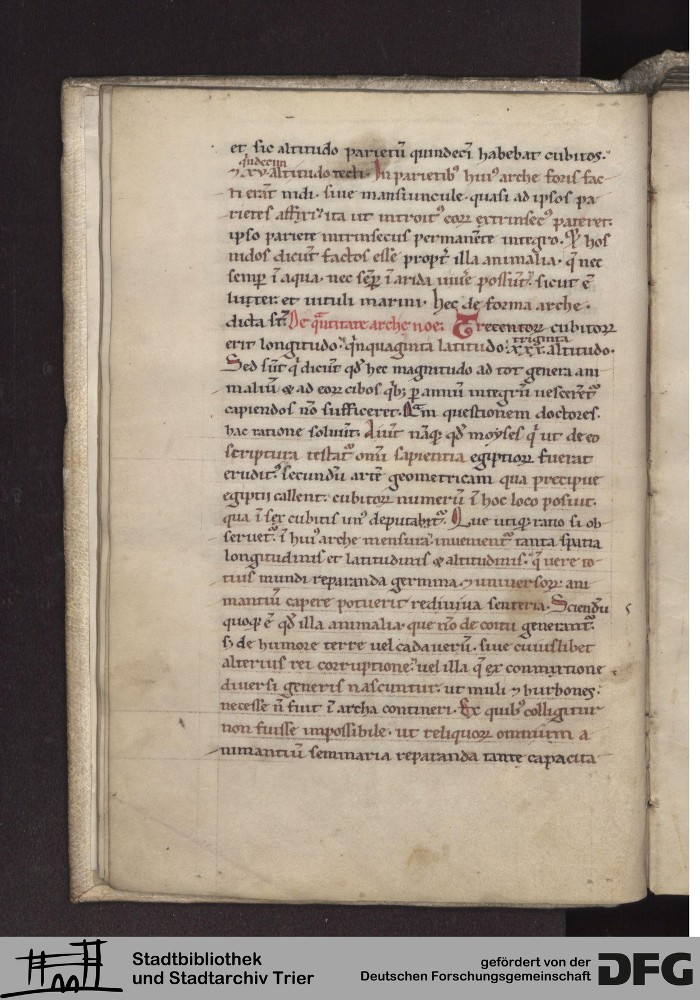 et sic altitudo parietū quindeci habebat cubitos.
qͥndecim
⁊ xv altitudo tecti. In parietibꝰ huiꝰ arche foris fac
ti erāt nidi. siue mansiuncule. quasi ad ipsos pa
rietes ita ut introitꝰ eoꝝ extrinsecꝰ pateret.
ipso pariete intrinsecus permanēte integro. hos
nidos dicūt factos esse propt̄ illa animalia. q̄ nec
semp̄ ī aqua. nec sēp̄ ī arida uiue͛ possūt. sicut ē
lutter. et uituli marini. hec de forma arche.
dicta sūt De qͣntitate arche noe. Trecentoꝝ cubitoꝝ
triginta
erit longitudo. qͥnquaginta latitudo. xxx. altitudo.
Sed sūt qͥ dicūt qd̄ hec magnitudo ad tot genera ani
maliū & ad eoꝝ cibos qͥbꝫ p̱ annū integrū uescerēt᷑
capiendos nō sufficeret. questionem doctores.
hac ratione soluūt. Aiūt nāqꝫ qd̄ moyses qͥ ut de eo
scriptura testat᷑ omī sapientia egiptioꝝ fuerat
eruditꝰ secundū artē geometricam qua precipue
egiptii callent. cubitoꝝ numerū ī hoc loco posuit.
qua ī sex cubitis unꝰ deputabit᷑. Que utiqꝫ ratio si ob
seruet᷑. ī huiꝰ arche mensura. inuenient᷑ tanta spatia
longitudinis et latitudinis & altitudinis. q̄ uere to
tius mundi reparanda germina. ⁊ uniuersoꝝ ani
mantiū capere potuerit rediuiua senteria. Sciendū
quoqꝫ ē qd̄ illa animalia. que nō de coitu generant᷑.
sꝫ de humore terre uel cadauerū. siue cuiuslibet
alterius rei corruptione. uel illa q̄ ex commixtione
diuersi generis nascuntur. ut muli ⁊ burbones.
necesse n̄ fuit ī archa contineri. Ex quibꝰ colligitur
non fuisse impossibile. ut reliquoꝝ omnium a
nimantiū seminaria reparanda tante capacita
Stadtbibliothek
und Stadtarchiv Trier
gefördert von der
Deutschen Forschungsgemeinschaft
DFG